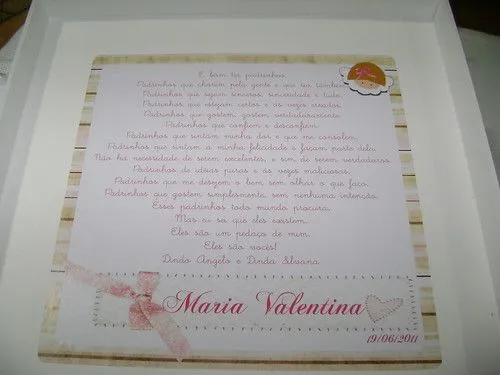 É bom ter padrinhos.
Padrinhos que chorem pela gente e que riu também.
Padrinhos que sejam sinceros, sinceridade e tudo.
Padrinhos que estejam certos e às vezes errados.
Padrinhos que gostem, gostem verdadeiramente.
Padrinhos que confiem e desconfiem.
Padrinhos que sintam minha dor e que me consolem.
Padrinhos que sintam a minha felicidade e façam parte dela.
Não há necessidade de serem excelentes, e sim de serem verdadeiros.
Padrinhos de idéias puras e às vezes maliciosas.
Padrinhos que me desejem o bem sem olhar o que faço.
Padrinhos que gostem simplesmente, sem nenhuma intenção.
Esses padrinhos todo mundo procura.
Mas eu sei que eles existem.
Eles são um pedaço de mim.
Eles são vocês!
Dindo Angelo e Dinda Silvana.
Maria Valentina
19/06/2011